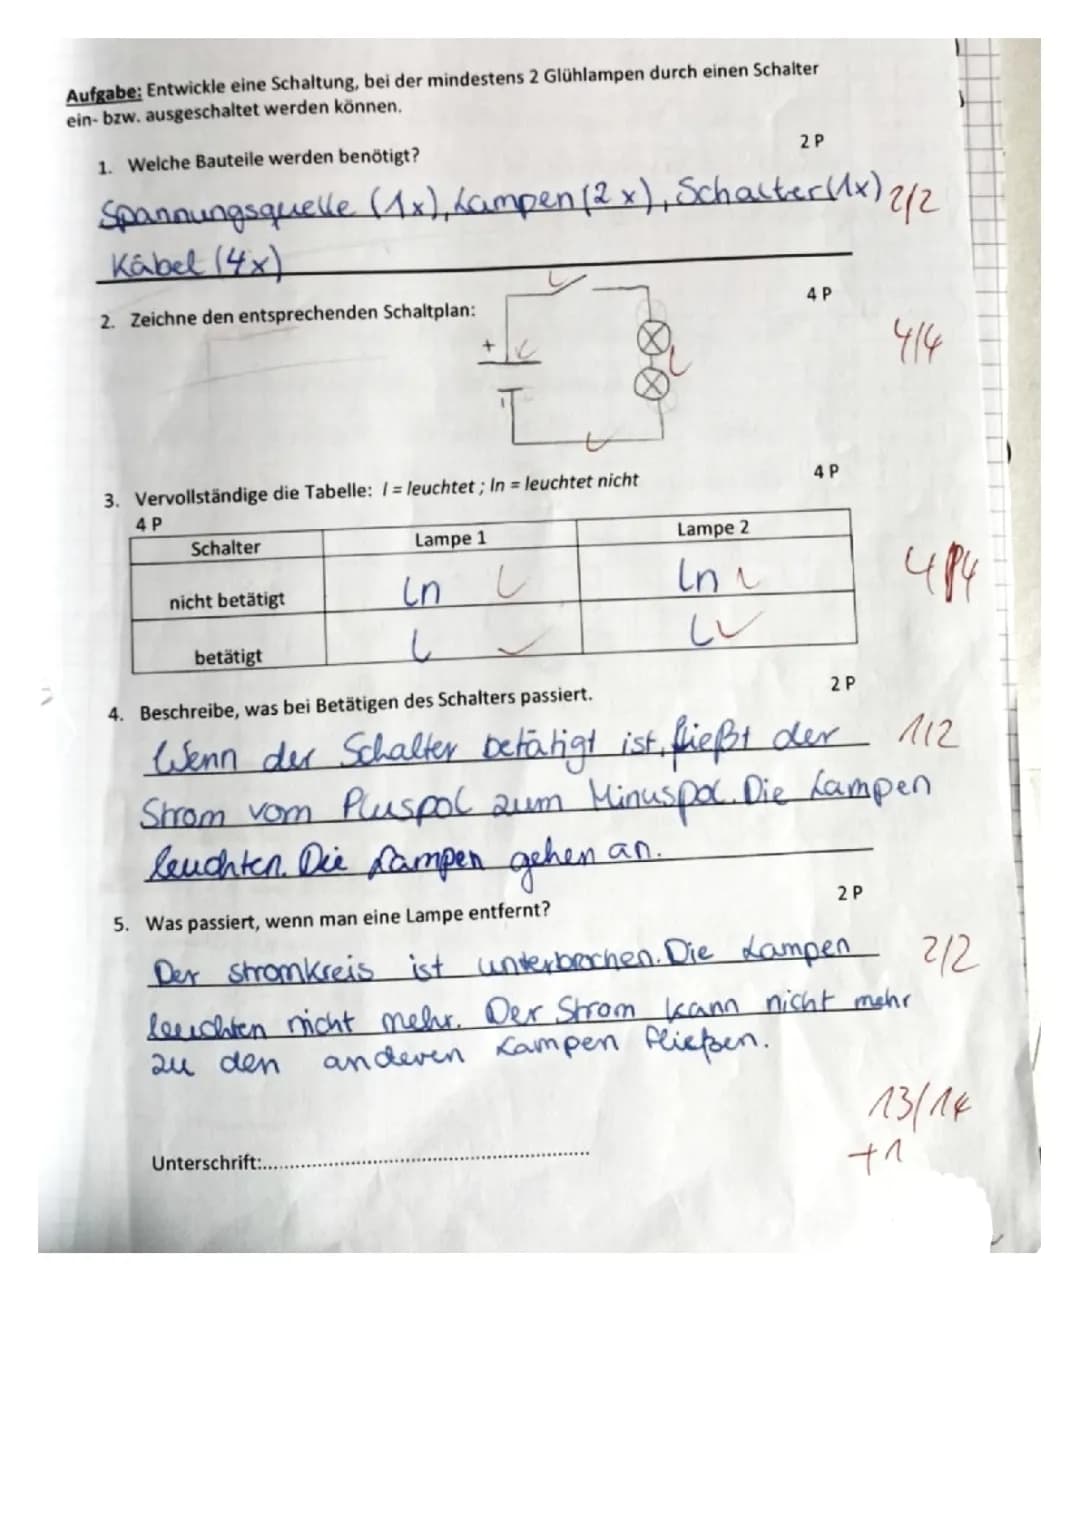 Aufgabe: Entwickle eine Schaltung, bei der mindestens 2 Glühlampen durch einen Schalter
ein- bzw. ausgeschaltet werden können.
1. Welche Bauteile werden benötigt? 2 P
Spannungsquelle (1x), Lampen (2x), Schalter (1x) 2/2
Kabel (4x)
2. Zeichne den entsprechenden Schaltplan: 4 P
+
4/4
3. Vervollständige die Tabelle: l = leuchtet ; ln = leuchtet nicht 4 P
4 P
Schalter Lampe 1 Lampe 2
nicht betätigt ln ln 4/4
betätigt l l
4. Beschreibe, was bei Betätigen des Schalters passiert. 2 P
Wenn der Schalter betätigt ist, fließt der 1/2
Strom vom Pluspol zum Minuspol. Die Lampen
leuchten. Die Lampen gehen an.
5. Was passiert, wenn man eine Lampe entfernt? 2 P
Der Stromkreis ist unterbrochen. Die Lampen 2/2
leuchten nicht mehr. Der Strom kann nicht mehr
zu den anderen Lampen fließen.
13/14
Unterschrift:.......................................................... +1